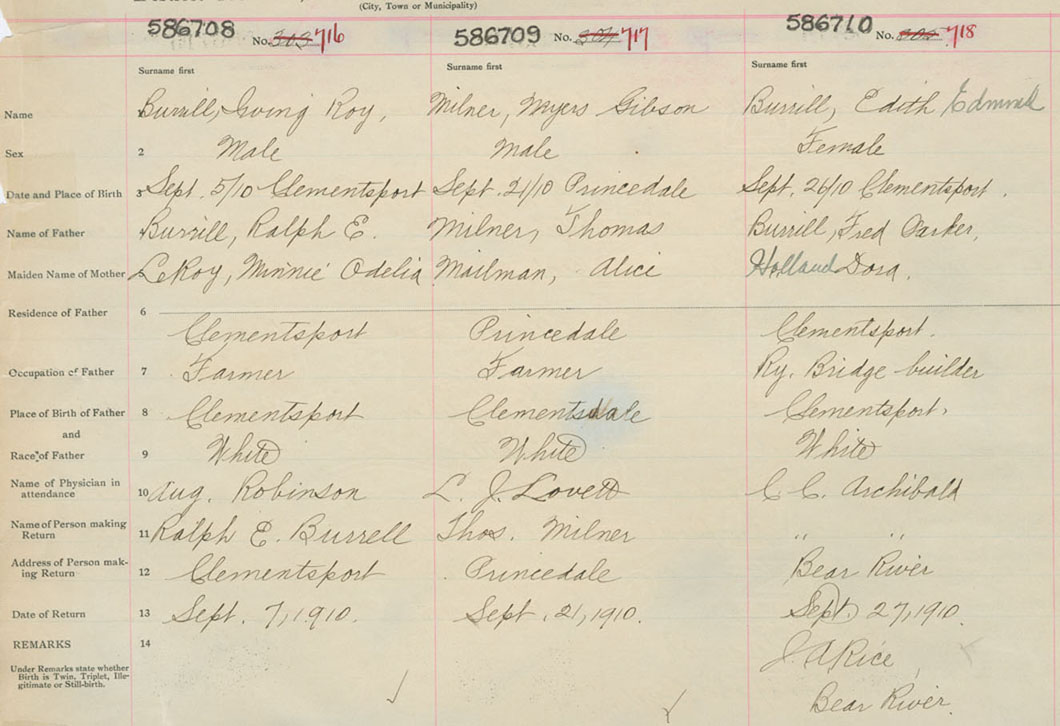 (City, Town or Municipality)
586708 No. 716
586709 No. 717
586710 No. 718
Surname first Surname first Surname first
Name Burrill, Irving Roy, Milner, Myers Gibson Burrill, Edith
Sex 2 Male Male Female
Date and Place of Birth 3 Sept. 5/10 Clementsport Sept. 21/10 Princedale Sept. 26/10 Clementsport.
Name of Father Burrill, Ralph E. Milner, Thomas Burrill, Fred Parker,
Maiden Name of Mother LeRoy, Minnie Odelia Mailman, Alice Holland Dora.
Residence of Father 6 Clementsport Princedale Clementsport.
Occupation of Father 7 Farmer Farmer Ry. Bridge builder
Place of Birth of Father 8 Clementsport Clementsdale Clementsport.
and
Race of Father 9 White White White
Name of Physician in attendance 10 Aug. Robinson L. J. Lovett C. C. Archibald
Name of Person making Return 11 Ralph E. Burrell Thos. Milner " "
Address of Person making Return 12 Clementsport Princedale Bear River
Date of Return 13 Sept. 7, 1910. Sept. 21, 1910. Sept. 27, 1910.
REMARKS 14 J. A Rice,
Under Remarks state whether
Birth is Twin, Triplet, Ille-
gitimate or Still-birth.
Bear River.